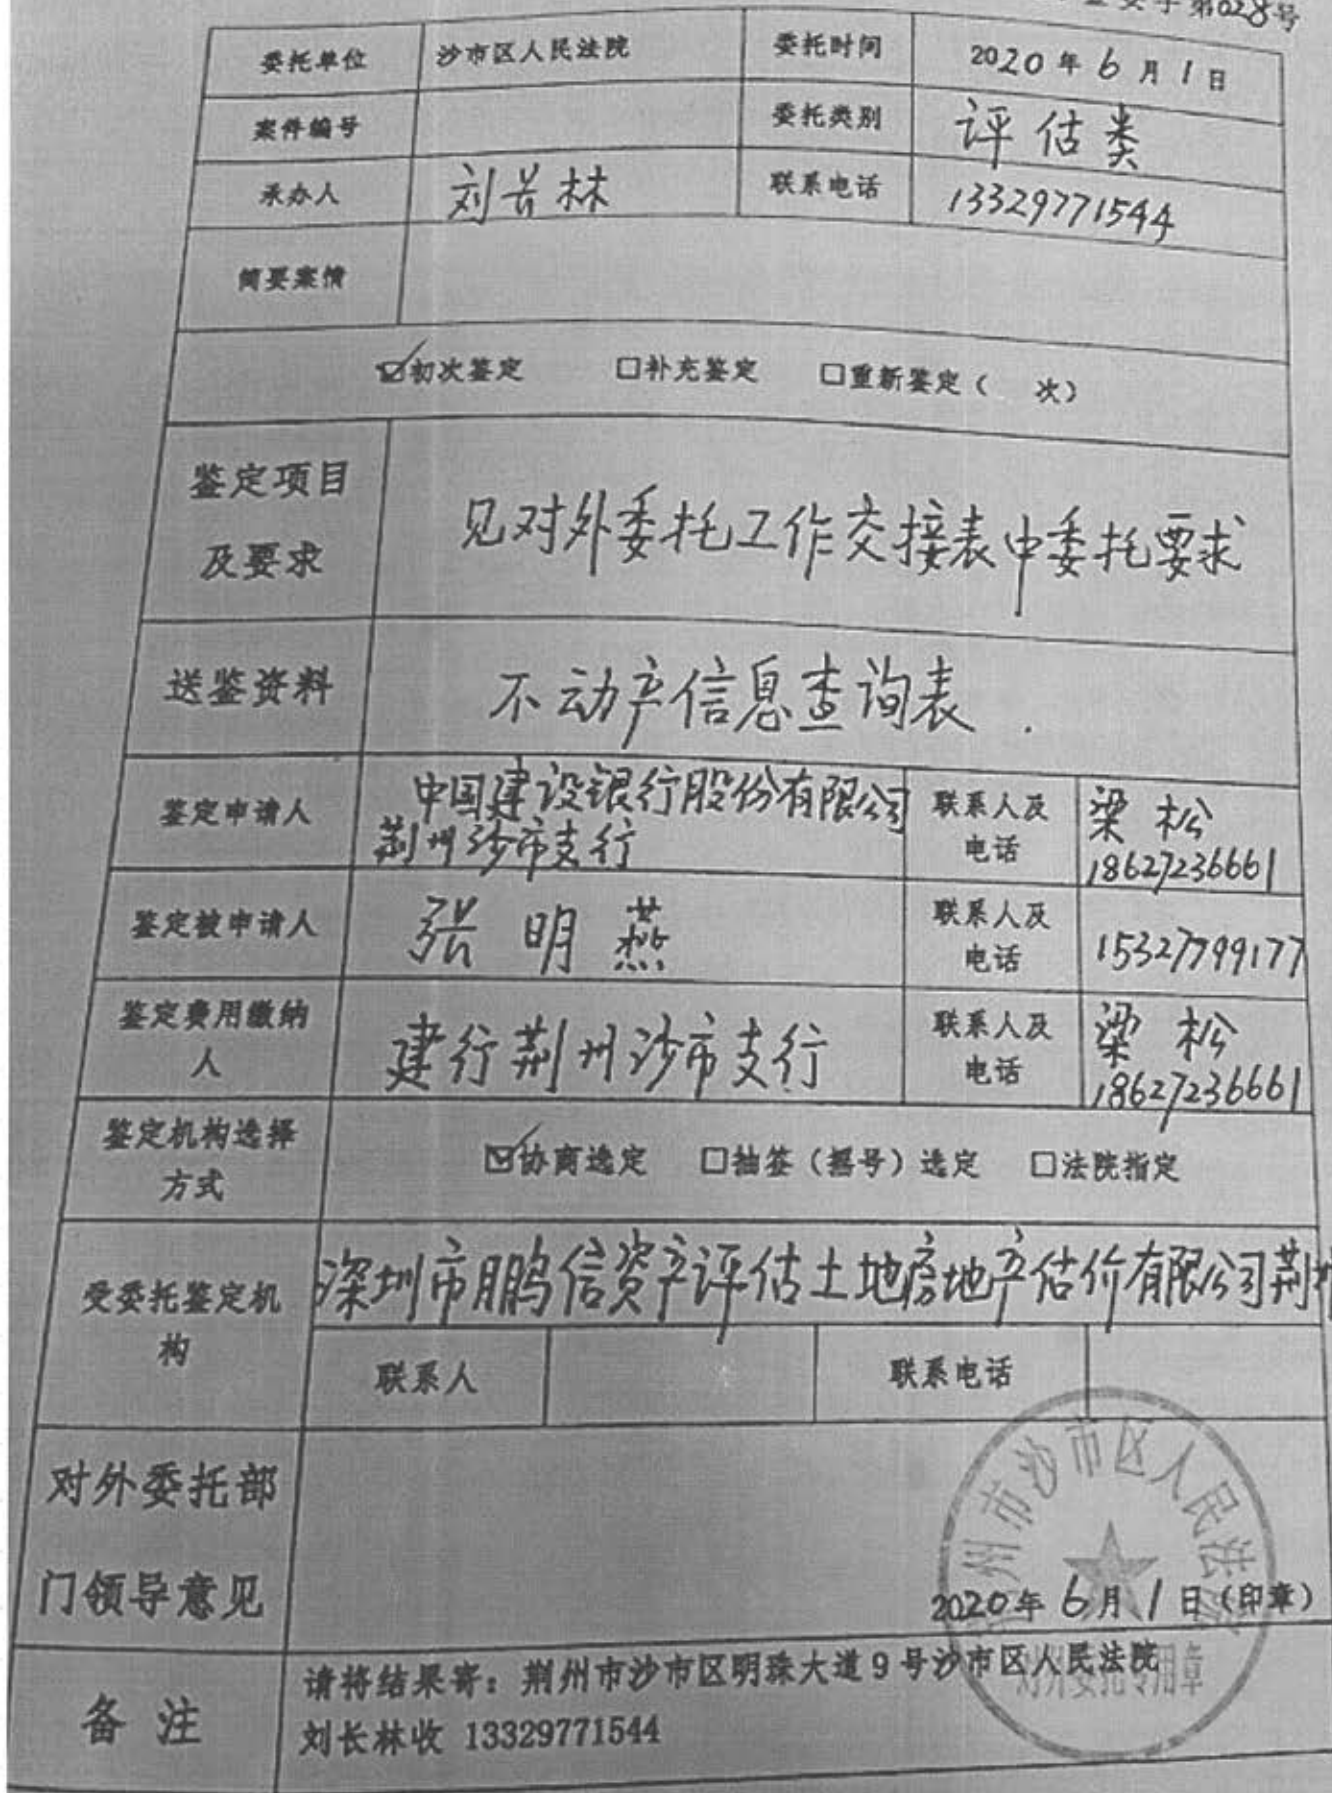 委字第028号
委托单位 沙市区人民法院 委托时间 2020年6月1日
案件编号 委托类别 评估类
承办人 刘长林 联系电话 13329771544
简要案情
☑初次鉴定 □补充鉴定 □重新鉴定( 次)
鉴定项目
及要求
见对外委托工作交接表中委托要求
送鉴资料 不动产信息查询表.
鉴定申请人
中国建设银行股份有限公司
荆州沙市支行
联系人及
电话
梁松
18627236661
鉴定被申请人 张明燕
联系人及
电话
15327799177
鉴定费用缴纳
人
建行荆州沙市支行
联系人及
电话
梁松
18627236661
鉴定机构选择
方式
☑协商选定 □抽签(摇号)选定 □法院指定
受委托鉴定机
构
深圳市鹏信资产评估土地房地产估价有限公司荆
联系人 联系电话
对外委托部
门领导意见
州市沙市区人民法院
2020年6月1日(印章)
对外委托专用章
备 注
请将结果寄:荆州市沙市区明珠大道9号沙市区人民法院
刘长林收 13329771544